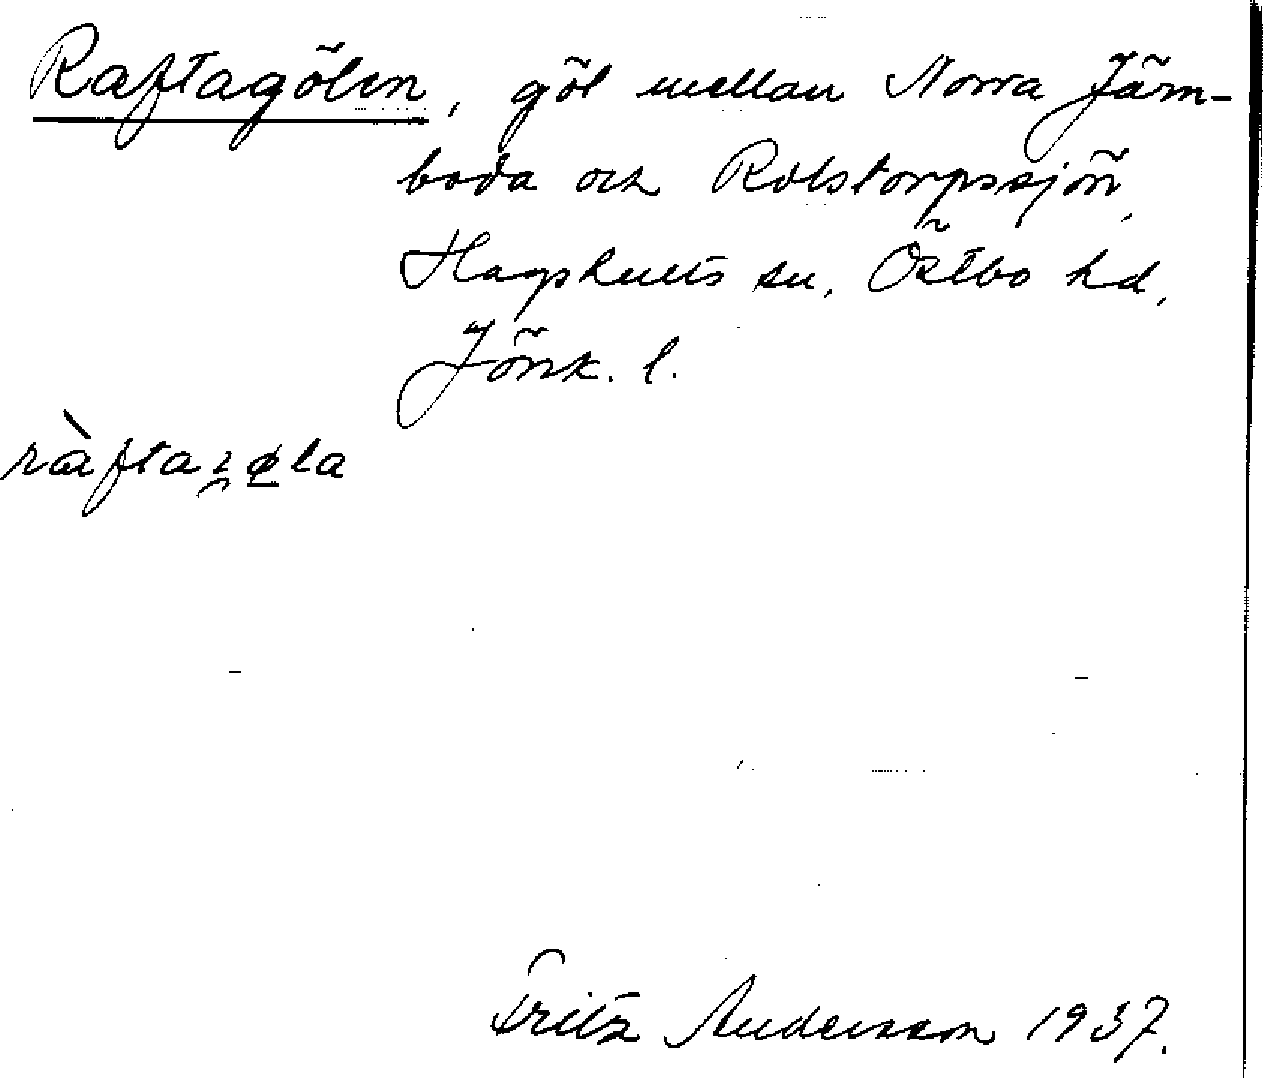 Raftagölen, göl mellan Norra Järn-
boda och Rolstorpssjön,
Hagshults sn, Östbo hd,
Jönk. l.
Fritz Andersson 1937.